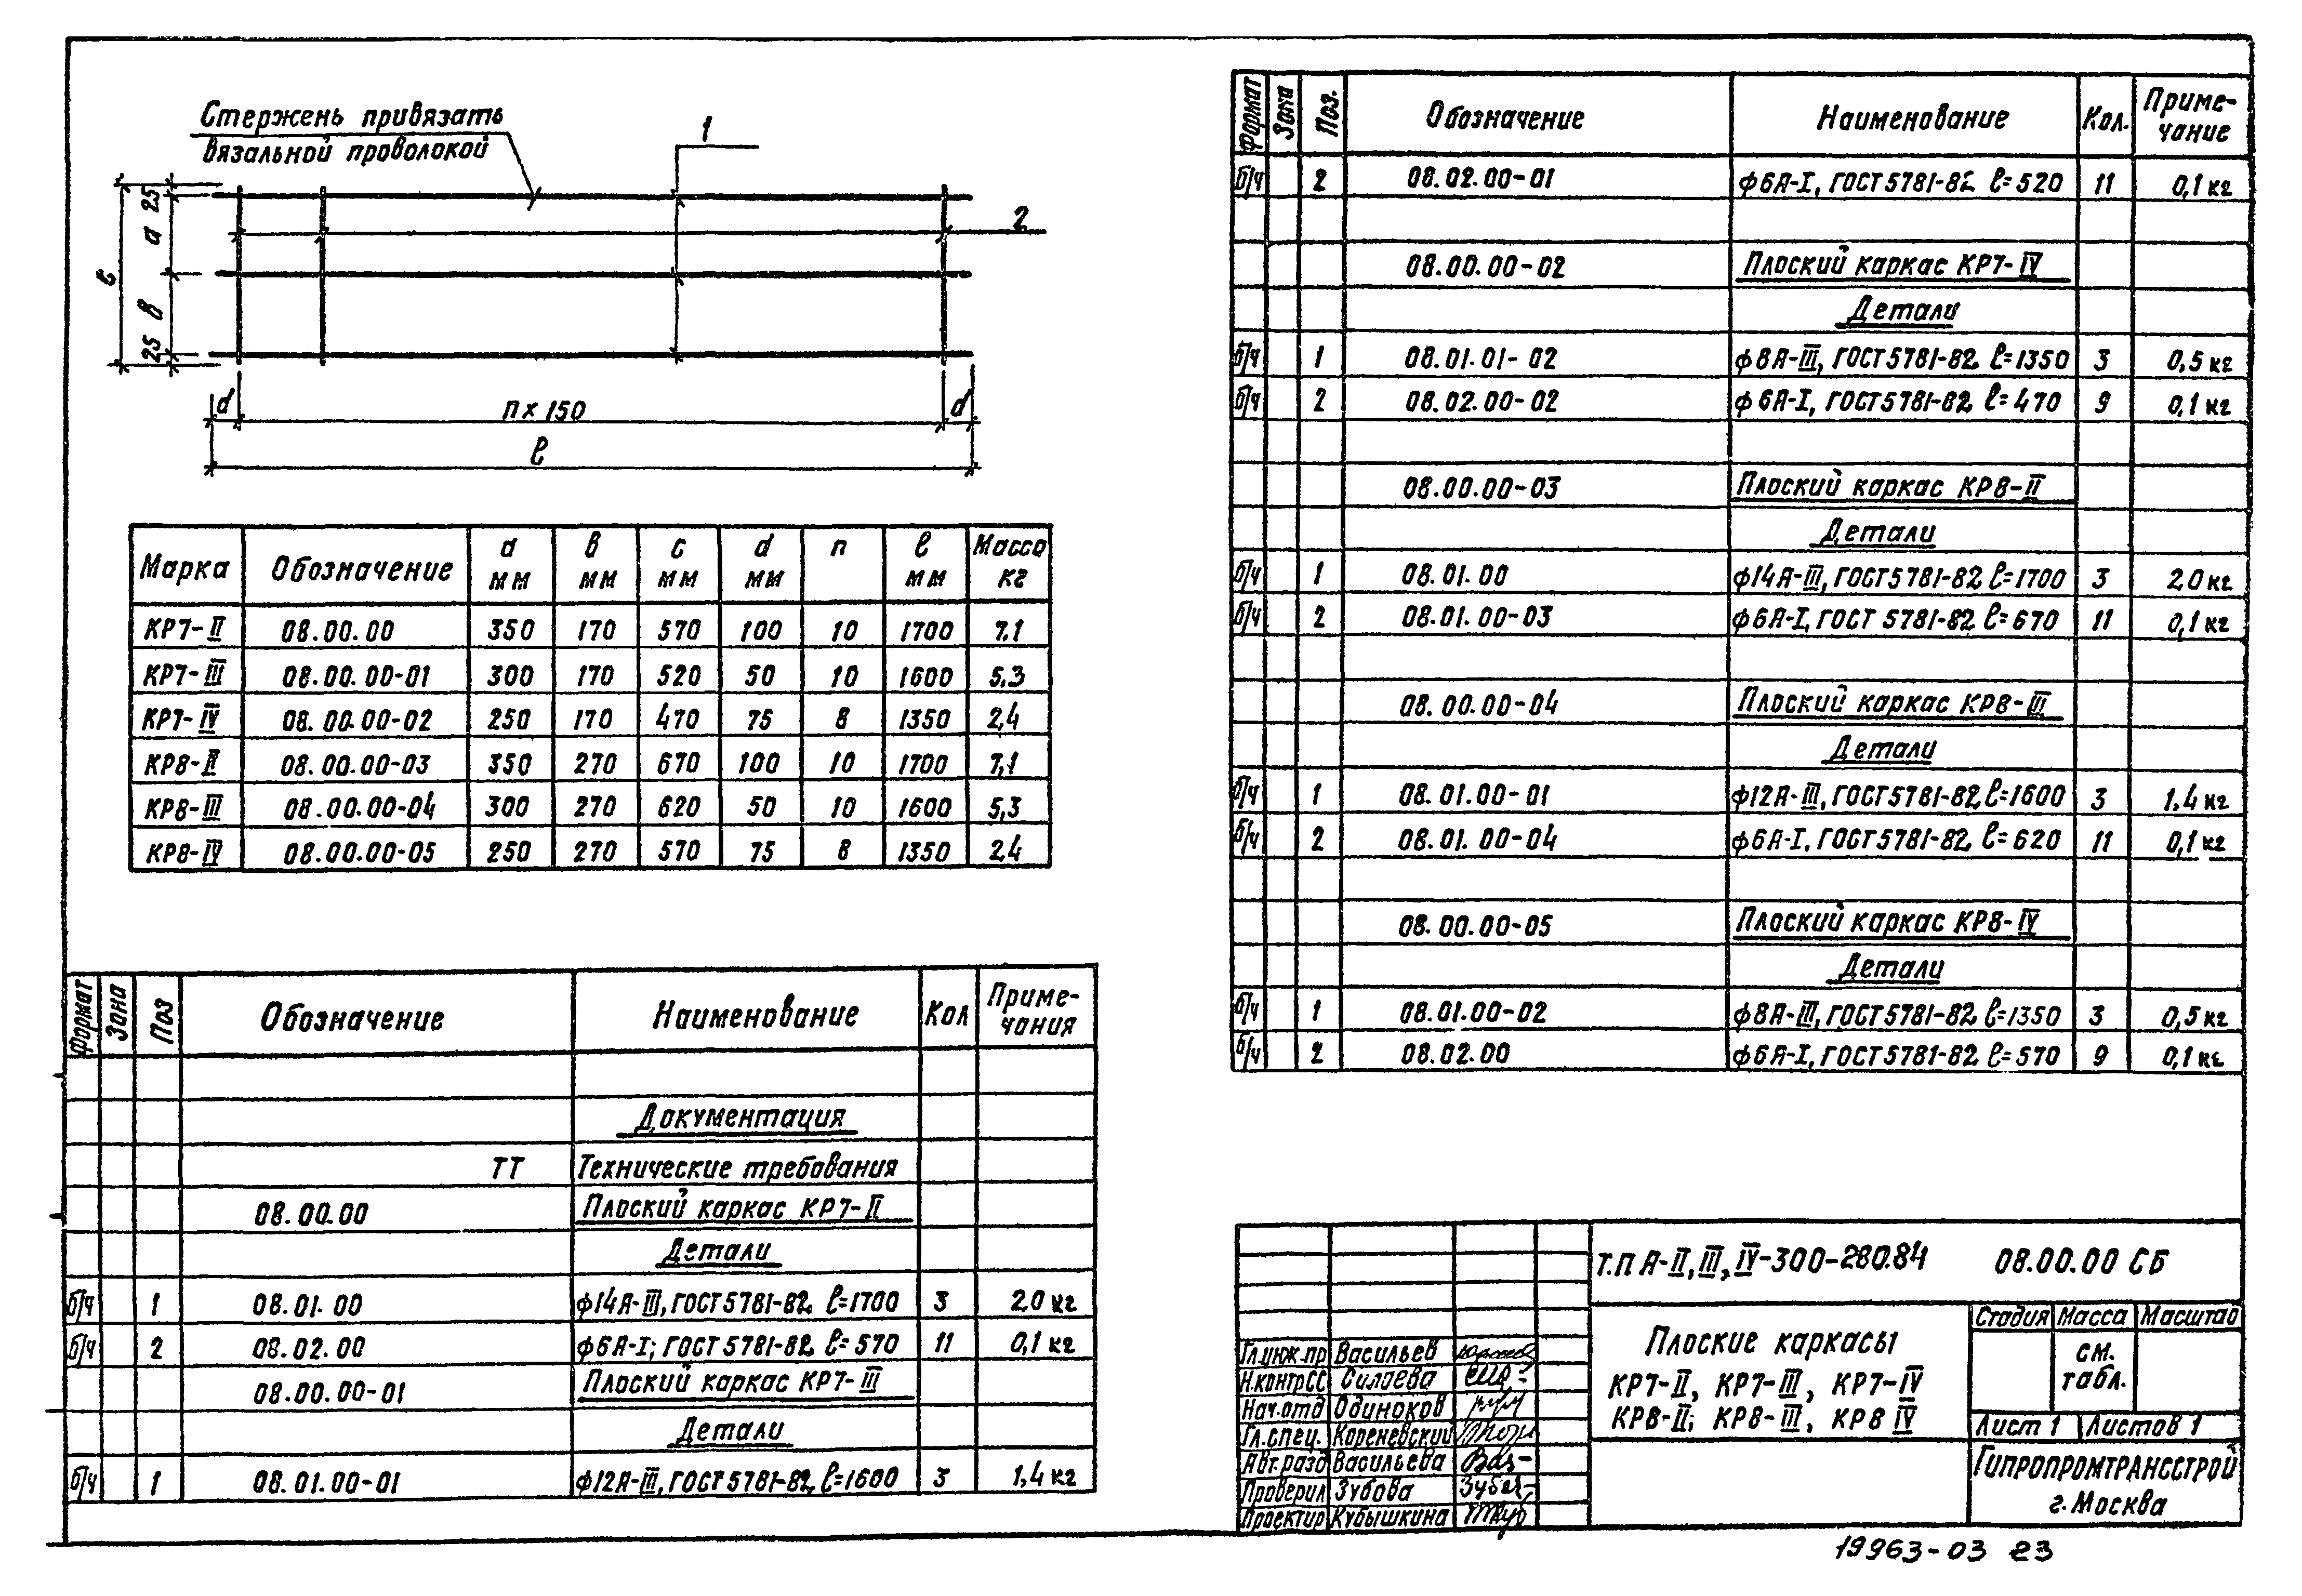 Стержень привязать
вязальной проволокой
1
2
25
а
в
25
с
d
п × 150
d
ℓ
Марка Обозначение а мм в мм с мм d мм п ℓ мм Масса кг
КР7-II 08.00.00 350 170 570 100 10 1700 7,1
КР7-III 08.00.00-01 300 170 520 50 10 1600 5,3
КР7-IV 08.00.00-02 250 170 470 75 8 1350 2,4
КР8-II 08.00.00-03 350 270 670 100 10 1700 7,1
КР8-III 08.00.00-04 300 270 620 50 10 1600 5,3
КР8-IV 08.00.00-05 250 270 570 75 8 1350 2,4
Формат Зона Поз Обозначение Наименование Кол Приме-чания
Документация
ТТ Технические требования
08.00.00 Плоский каркас КР7-II
Детали
б/ч 1 08.01.00 ф14А-III, ГОСТ 5781-82, ℓ=1700 3 2,0 кг
б/ч 2 08.02.00 ф6А-I; ГОСТ 5781-82 ℓ=570 11 0,1 кг
08.00.00-01 Плоский каркас КР7-III
Детали
б/ч 1 08.01.00-01 ф12А-III, ГОСТ 5781-82, ℓ=1600 3 1,4 кг
Формат Зона Поз. Обозначение Наименование Кол. Приме-чание
б/ч 2 08.02.00-01 ф6А-I, ГОСТ 5781-82 ℓ=520 11 0,1 кг
08.00.00-02 Плоский каркас КР7-IV
Детали
б/ч 1 08.01.01-02 ф8А-III, ГОСТ 5781-82 ℓ=1350 3 0,5 кг
б/ч 2 08.02.00-02 ф6А-I, ГОСТ 5781-82, ℓ=470 9 0,1 кг
08.00.00-03 Плоский каркас КР8-II
Детали
б/ч 1 08.01.00 ф14А-III, ГОСТ 5781-82 ℓ=1700 3 2,0 кг
б/ч 2 08.01.00-03 ф6А-I, ГОСТ 5781-82 ℓ=670 11 0,1 кг
08.00.00-04 Плоский каркас КР8-III
Детали
б/ч 1 08.01.00-01 ф12А-III, ГОСТ 5781-82, ℓ=1600 3 1,4 кг
б/ч 2 08.01.00-04 ф6А-I, ГОСТ 5781-82, ℓ=620 11 0,1 кг
08.00.00-05 Плоский каркас КР8-IV
Детали
б/ч 1 08.01.00-02 ф8А-III, ГОСТ 5781-82 ℓ=1350 3 0,5 кг
б/ч 2 08.02.00 ф6А-I, ГОСТ 5781-82 ℓ=570 9 0,1 кг
Т.П А-II, III, IV-300-280.84 08.00.00 СБ
Плоские каркасы
КР7-II, КР7-III, КР7-IV
КР8-II; КР8-III, КР8 IV
Стадия Масса Масштаб
см. табл.
Лист 1 Листов 1
Гипропромтрансстрой
г. Москва
Гл.инж.пр Васильев
Н.контрСС Силаева
Нач.отд Одиноков
Гл.спец. Кореневский
Авт.разд Васильева
Проверил Зубова
Проектир Кубышкина
19963-03 23